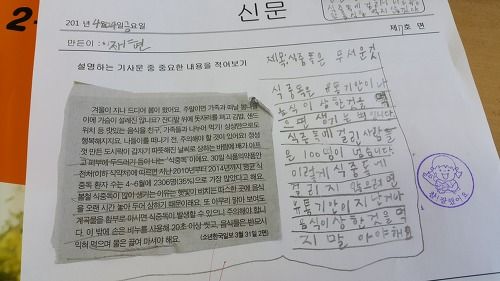 신문
201 년 4월 일금요일
제 면
만든이 :
설명하는 기사문 중 중요한 내용을 적어보기
겨울이 지나 드디어 봄이 왔어요. 주말이면 가족과 떠날 봄나들
이에 가슴이 설레진 않나요? 잔디밭 위에 돗자리를 펴고 김밥, 샌드
위치 등 맛있는 음식을 친구, 가족들과 나눠 먹기! 상상만으로도
행복해지지요. 나들이를 떠나기 전, 주의해야 할 것이 있어요! 정성
껏 만든 도시락이 갑자기 따뜻해진 날씨로 상하는 바람에 배가 아프
고 피부에 두드러기 등이 나는 '식중독' 이에요. 30일 식품의약품안
전처(이하 식약처)에 따르면 지난 2010년부터 2014년까지 평균 식
중독 환자 수는 4~6월에 2306명(36%)으로 가장 많았다고 해요.
봄철 식중독이 많이 생기는 이유는 햇빛이 비치는 따스한 곳에 음식
을 오랜 시간 놓아 두어 상하기 때문이래요. 또 아무리 맑아 보여도
계곡물을 함부로 마시면 식중독이 발생할 수 있으니 주의해야 합니
다. 이 밖에 손은 비누를 사용해 20초 이상 씻고, 음식물은 반드시
익혀 먹으며 물은 끓여 마셔야 해요.
(소년한국일보 3월 31일 2면)
제목:식중독은 무서운것
식중독은 유통기한이나
음식이 상한것을 먹
으면 생기는 병입니다.
식중독에 걸린 사람들
은 100명이 넘습니다.
이렇게 식중독에
걸리지 않으려면
유통기한이 지난거나
음식이 상한것을 먹
지 말아야해요
참 잘했어요